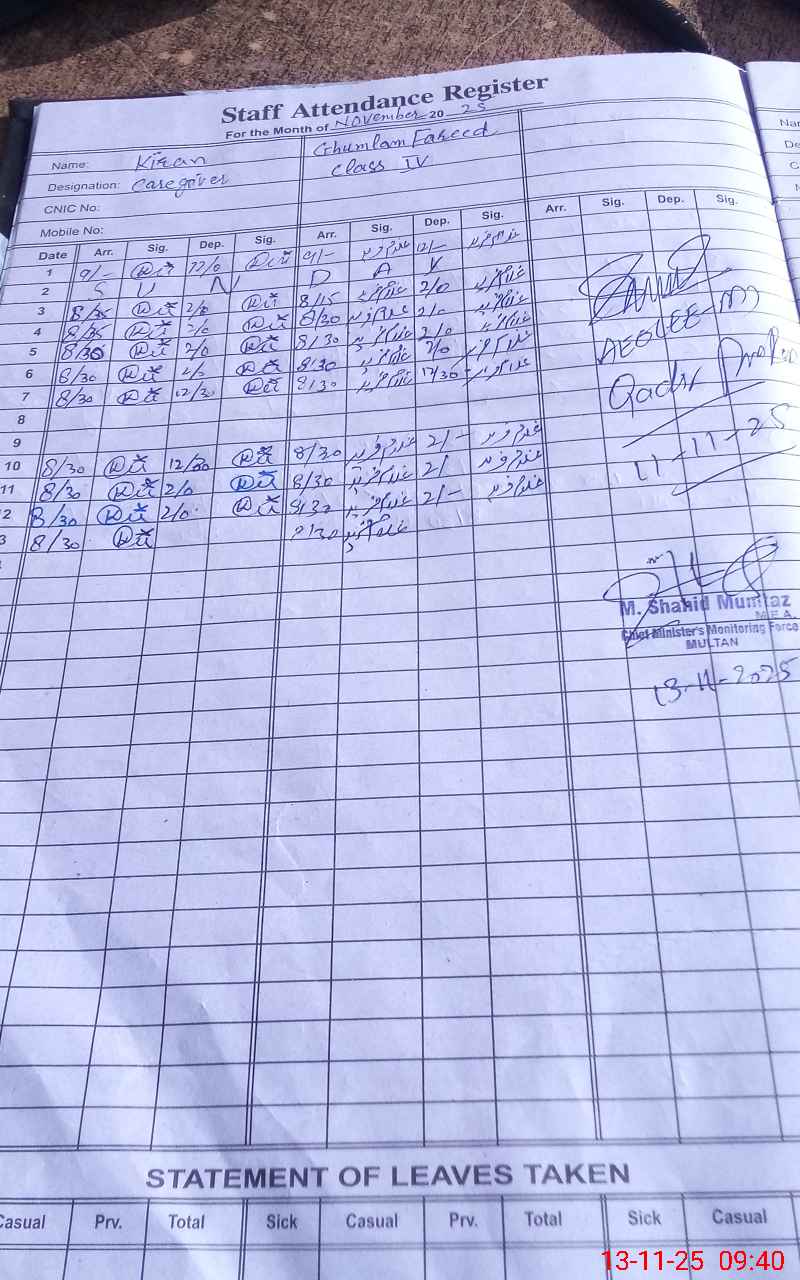 Staff Attendance Register
For the Month of November 2025
Name: Kiran Ghumlam Fareed
Designation: Caregiver Class IV
CNIC No:
Mobile No:
Date Arr. Sig. Dep. Sig. Arr. Sig. Dep. Sig. Arr. Sig. Dep. Sig.
1 9/- 12/0 9/- غلام فرید 12/- غلام فرید
2 S U N D A Y
3 8/35 2/0 8/15 غلام فرید 2/0 غلام فرید
4 8/35 2/0 8/30 غلام فرید 2/0 غلام فرید
5 8/30 2/0 8/30 غلام فرید 2/0 غلام فرید
6 8/30 2/0 8/30 غلام فرید 2/0 غلام فرید
7 8/30 12/30 8/30 غلام فرید 12/30 غلام فرید
8
9
10 8/30 12/30 8/30 غلام فرید 2/- غلام فرید
11 8/30 2/0 8/30 غلام فرید 2/ غلام فرید
2 8/30 2/0 8/30 غلام فرید 2/- غلام فرید
3 8/30 8/30 غلام فرید
11-11-25
M. Shahid Mumtaz
M.E.A.
Chief Minister's Monitoring Force
MULTAN
13-11-2025
STATEMENT OF LEAVES TAKEN
Casual Prv. Total Sick Casual Prv. Total Sick Casual
13-11-25 09:40